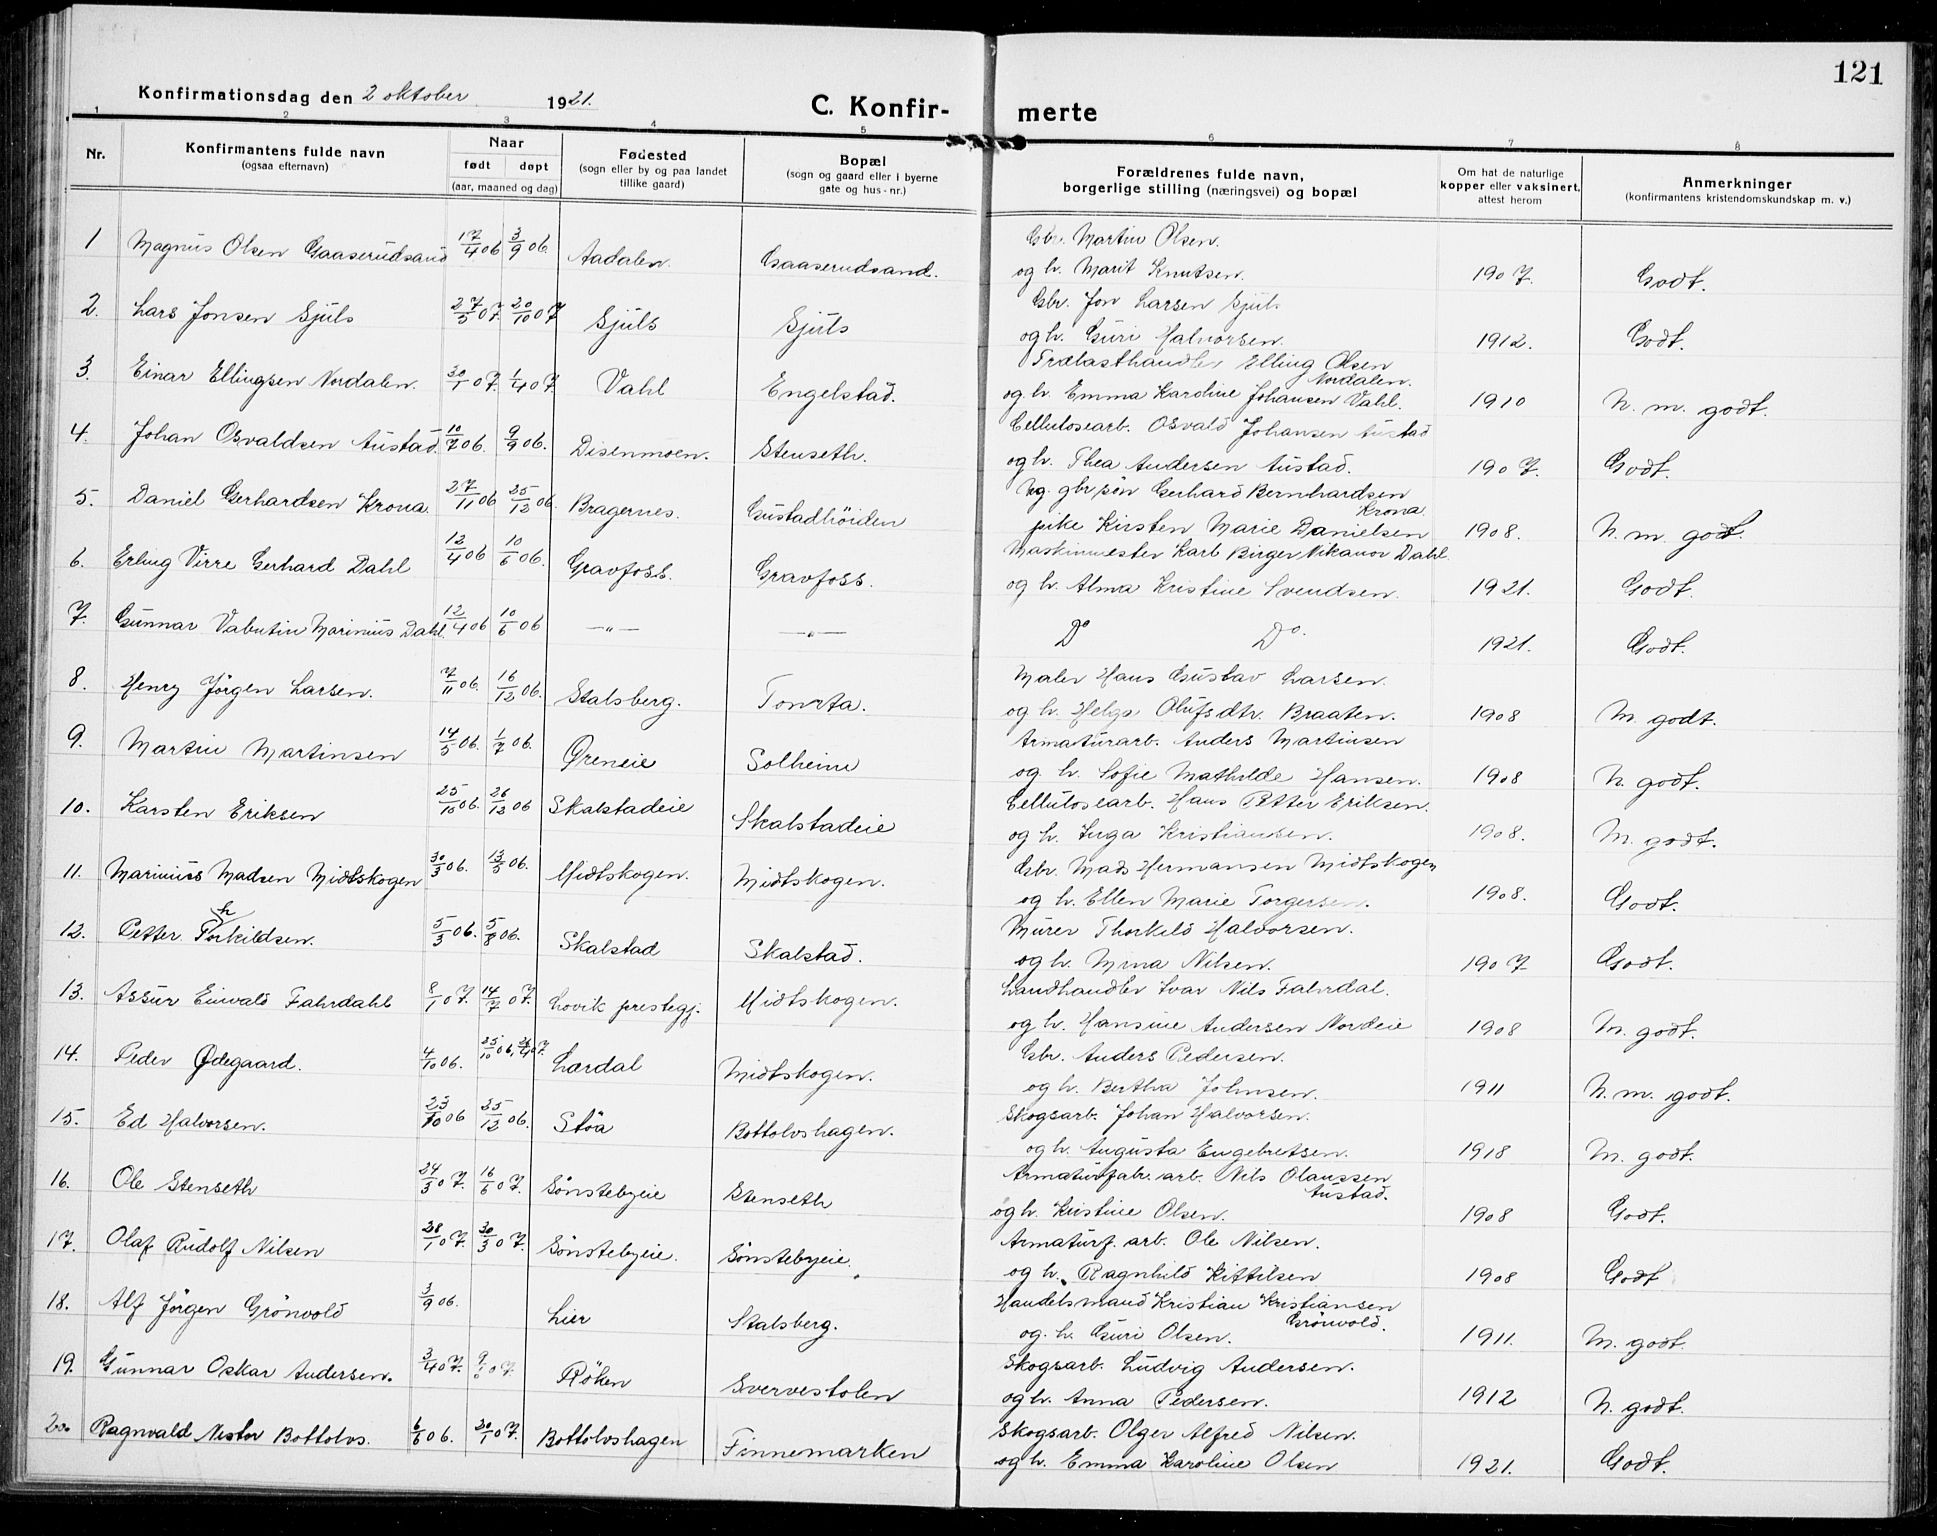 121
Konfirmationsdag den 2 oktober 1921.
C. Konfir- merte
1 2 3 4 5 6 7 8
Nr. Konfirmantens fulde navn (ogsaa efternavn) Naar født døpt (aar, maaned og dag) Fødested (sogn eller by og paa landet tillike gaard) Bopæl (sogn og gaard eller i byerne gate og hus-nr.) Forældrenes fulde navn, borgerlige stilling (næringsvei) og bopæl Om hat de naturlige kopper eller vaksinert, attest herom Anmerkninger (konfirmantens kristendomskundskap m. v.)
1 Magnus Olsen Gaaserudsand 17/4 06 3/9 06 Aadalen. Gaaserudsand. Gbr. Martin Olsen.
og h. Marit Knutsen. 1907. Godt.
2. Lars Jonsen Gjuls 27/5 07. 20/10 07 Gjuls Gjuls Gbr. Jon Larsen Gjuls
og h. Guri Halvorsen. 1912. Godt.
3. Einar Ellingsen Nordalen. 30/1 07. 1/4 07. Vahl Engelstad. Trælasthandler Elling Olsen Nordalen.
og h. Emma Karoline Johansen Vahl. 1910 N. m. godt.
4. Johan Osvaldsen Austad 10/7 06. 9/9 06. Disenmoen. Stenseth. Cellulosearb. Osvald Johansen Austad
og h. Thea Andersen Austad. 1907. Godt.
5. Daniel Gerhardsen Krona. 27/11 06 25/12 06. Bragernes. Gustadhöiden Ug. gbr søn Gerhard Bernhardsen Krona.
pike Kirsten Marie Danielsen 1908. N. m. godt.
6. Erling Virre Gerhard Dahl 12/4 06 10/6 06. Gravfoss. Gravfoss. Maskinmester Karl Birger Nikanor Dahl.
og h. Alma Kristine Svendsen. 1921. Godt.
7. Gunnar Valentin Marinius Dahl. 12/4 06 10/6 06 —"— —"— Do Do. 1921. Godt.
8. Henry Jörgen Larsen. 7/11 06. 16/12 06. Stalsberg. Tonrta. Maler Hans Gustav Larsen.
og h. Helga Olufsdtr. Braaten. 1908 M. godt.
9. Martin Martinsen 14/5 06. 1/7 06. Øreneie Solheim Armaturarb. Anders Martinsen
og h. Sofie Mathilde Hansen. 1908 N. godt.
10. Karsten Eriksen 25/10 06. 26/12 06 Skalstadeie Skalstadeie Cellulosearb. Hans Petter Eriksen.
og h. Inga Kristiansen. 1908. M. godt.
11. Marinius Madsen Midtskogen 30/3 06. 13/5 06. Midtskogen. Midtskogen. Gbr. Mads Hermansen Midtskogen
og h. Ellen Marie Torgersen. 1908. Godt.
12. Petter Thorkildsen. 5/3 06. 5/8 06. Skalstad Skalstad. Murer Thorkild Halvorsen.
og h. Mina Nilsen. 1907 Godt.
13. Assur Eivald Fahrdahl 8/1 07. 14/7 07. Lovik prestegj. Midtskogen. Landhandler Ivar Nils Fahrdal.
og h. Hansine Andersen Nordeie 1908 M. godt.
14. Peder Ødegaard. 4/10 06. 25/10 06, 07. Lærdal Midtskogen. Gbr. Anders Pedersen.
og h. Bertha Johnsen. 1911 N. m. godt.
15. Ed Halvorsen. 23/10 06 25/12 06. Stöa Bottolvshagen. Skogsarb. Johan Halvorsen.
og h. Augusta Engebretsen. 1918 M. godt.
16. Ole Stenseth 24/3 07. 16/6 07. Sönstebyeie Stenseth Armaturfabr. arb. Nils Olaussen Austad.
og h. Kristine Olsen. 1908 Godt.
17. Olaf Rudolf Nilsen 28/1 07. 30/3 07. Sönstebyeie. Sönstebyeie. Armaturf. arb. Ole Nilsen.
og h. Ragnhild Kittilsen 1908 Godt
18. Alf Jörgen Grönvold 3/9 06. Lier Stalsberg. Handelsmand Kristian Kristiansen Grönvold.
og. h. Guri Olsen. 1911. M. godt.
19. Gunnar Oskar Andersen. 3/4 07. 07. Röken Svervestolen Skogsarb. Ludvig Andersen.
og h. Anna Pedersen. 1912 N. godt.
20. Ragnvald Nestor Bottolvs. 6/6 06. 20/1 07. Bottolvshagen Finnemarken Skogsarb. Olger Alfred Nilsen.
og h. Emma Karoline Olsen 1921. Godt.